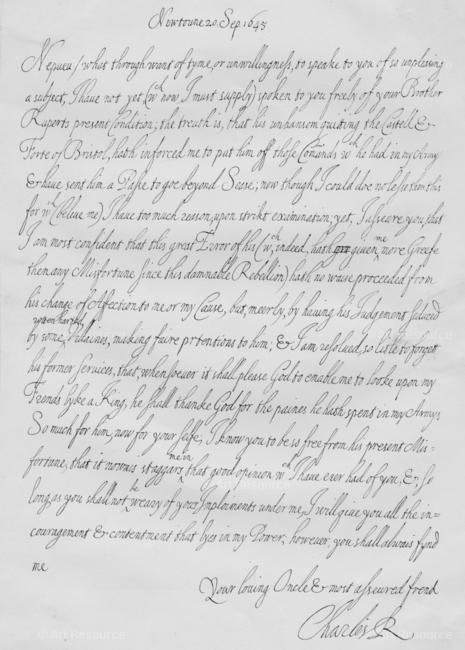 Newtoune 20. Sep. 1645
Nepueu / what through want of tyme, or unwillingness, to speake to you of so unplising
a subject, I have not yet (wch now I must supply) spoken to you freely of your Brother
Ruperts present Condition; the treuth is, that his unhansom quiting the Castell &
Forte of Bristol, hath inforced me to put him off those Comands wch he had in my Army
& have sent him a Passe to goe beyond Sease; now though I could doe no lesse then this
for wch (believe me) I have too much reason, upon strikt examination; yet, I assure you, that
I am most confident that this great Error of his (wch, indeed, hath given me more Greefe
then any Misfortune since this damnable Rebellion) hath no waise proceeded from
his change of Affection to me or my Cause, but, meerly, by having his Judgement seduced
by some rotten harted Villaines, making faire pretentions to him; & I am resolved so litle to forgett
his former Services, that, whensoever it shall please God to enable me to looke upon my
Frends lyke a King, he shall thanke God for the paines he hath spent in my Army;
So much for him, now for your selfe; I know you to be so free from his present Mis=
fortune, that it nowais staggars me in that good opinion wch I have ever had of you, & so
long as you shall not be weary of your Imploiments under me, I will give you all the in=
couragement & contentment that lyes in my Power, however, you shall alwais fynd
me
Your loving Oncle & most asseured frend
Charles R
© Art Resource
© Art Resource